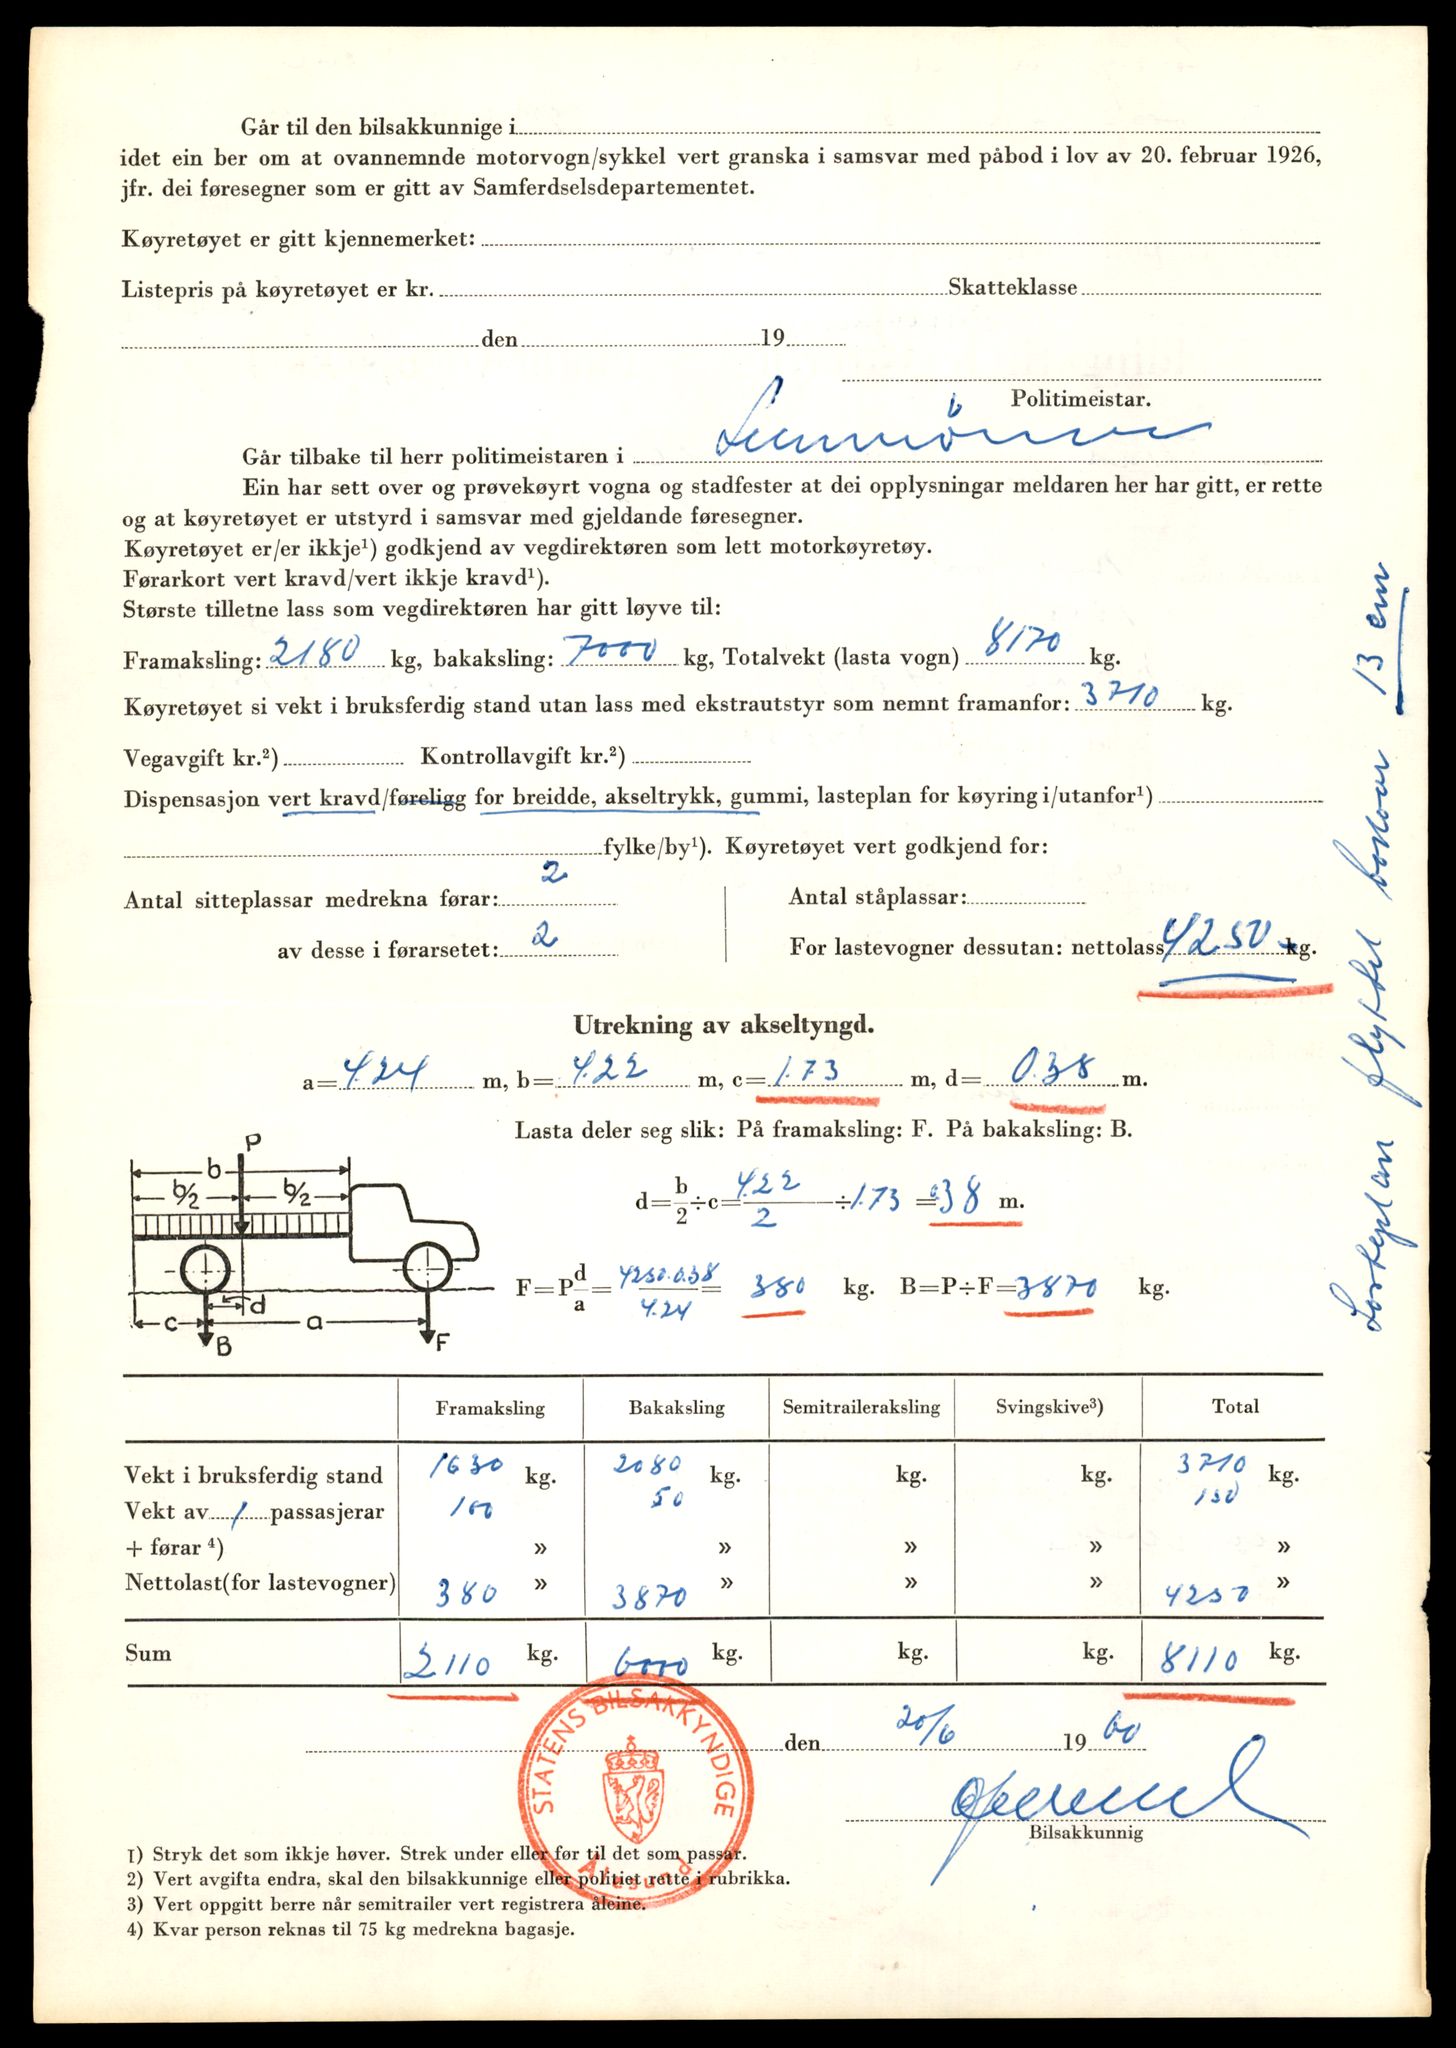 Går til den bilsakkunnige i
idet ein ber om at ovannemnde motorvogn/sykkel vert granska i samsvar med påbod i lov av 20. februar 1926,
jfr. dei føresegner som er gitt av Samferdselsdepartementet.
Køyretøyet er gitt kjennemerket:
Listepris på køyretøyet er kr. Skatteklasse
den 19
Politimeistar.
Går tilbake til herr politimeistaren i Sunnmöre
Ein har sett over og prøvekøyrt vogna og stadfester at dei opplysningar meldaren her har gitt, er rette
og at køyretøyet er utstyrd i samsvar med gjeldande føresegner.
Køyretøyet er/er ikkje¹) godkjend av vegdirektøren som lett motorkøyretøy.
Førarkort vert kravd/vert ikkje kravd¹).
Største tilletne lass som vegdirektøren har gitt løyve til:
Framaksling: 2180 kg, bakaksling: 7000 kg, Totalvekt (lasta vogn) 8170 kg.
Køyretøyet si vekt i bruksferdig stand utan lass med ekstrautstyr som nemnt framanfor: 3710 kg.
Vegavgift kr.²) Kontrollavgift kr.²)
Dispensasjon vert kravd/føreligg for breidde, akseltrykk, gummi, lasteplan for køyring i/utanfor¹)
fylke/by¹). Køyretøyet vert godkjend for:
Antal sitteplassar medrekna førar: 2 Antal ståplassar:
av desse i førarsetet: 2 For lastevogner dessutan: nettolass 4250 kg.
Utrekning av akseltyngd.
a= 4.24 m, b= 4.22 m, c= 1.73 m, d= 0.38 m.
Lasta deler seg slik: På framaksling: F. På bakaksling: B.
P
b
b/2 b/2
d
c a
B F
d = b/2 ÷ c = 4.22/2 ÷ 1.73 = 0.38 m.
F = P d/a = 4250.0.38/4.24 = 380 kg. B = P ÷ F = 3870 kg.
Framaksling Bakaksling Semitraileraksling Svingskive³) Total
Vekt i bruksferdig stand 1630 kg. 2080 kg. kg. kg. 3710 kg.
Vekt av 1 passasjerar 100 50 150
+ førar ⁴) » » » » »
Nettolast (for lastevogner) 380 » 3870 » » » 4250 »
Sum 2110 kg. 6000 kg. kg. kg. 8110 kg.
den 20/6 1960
Bilsakkunnig
STATENS BILSAKKYNDIGE
Ålesund
1) Stryk det som ikkje høver. Strek under eller før til det som passar.
2) Vert avgifta endra, skal den bilsakkunnige eller politiet rette i rubrikka.
3) Vert oppgitt berre når semitrailer vert registrera åleine.
4) Kvar person reknas til 75 kg medrekna bagasje.
Lasteplan flyttet bakover 13 cm